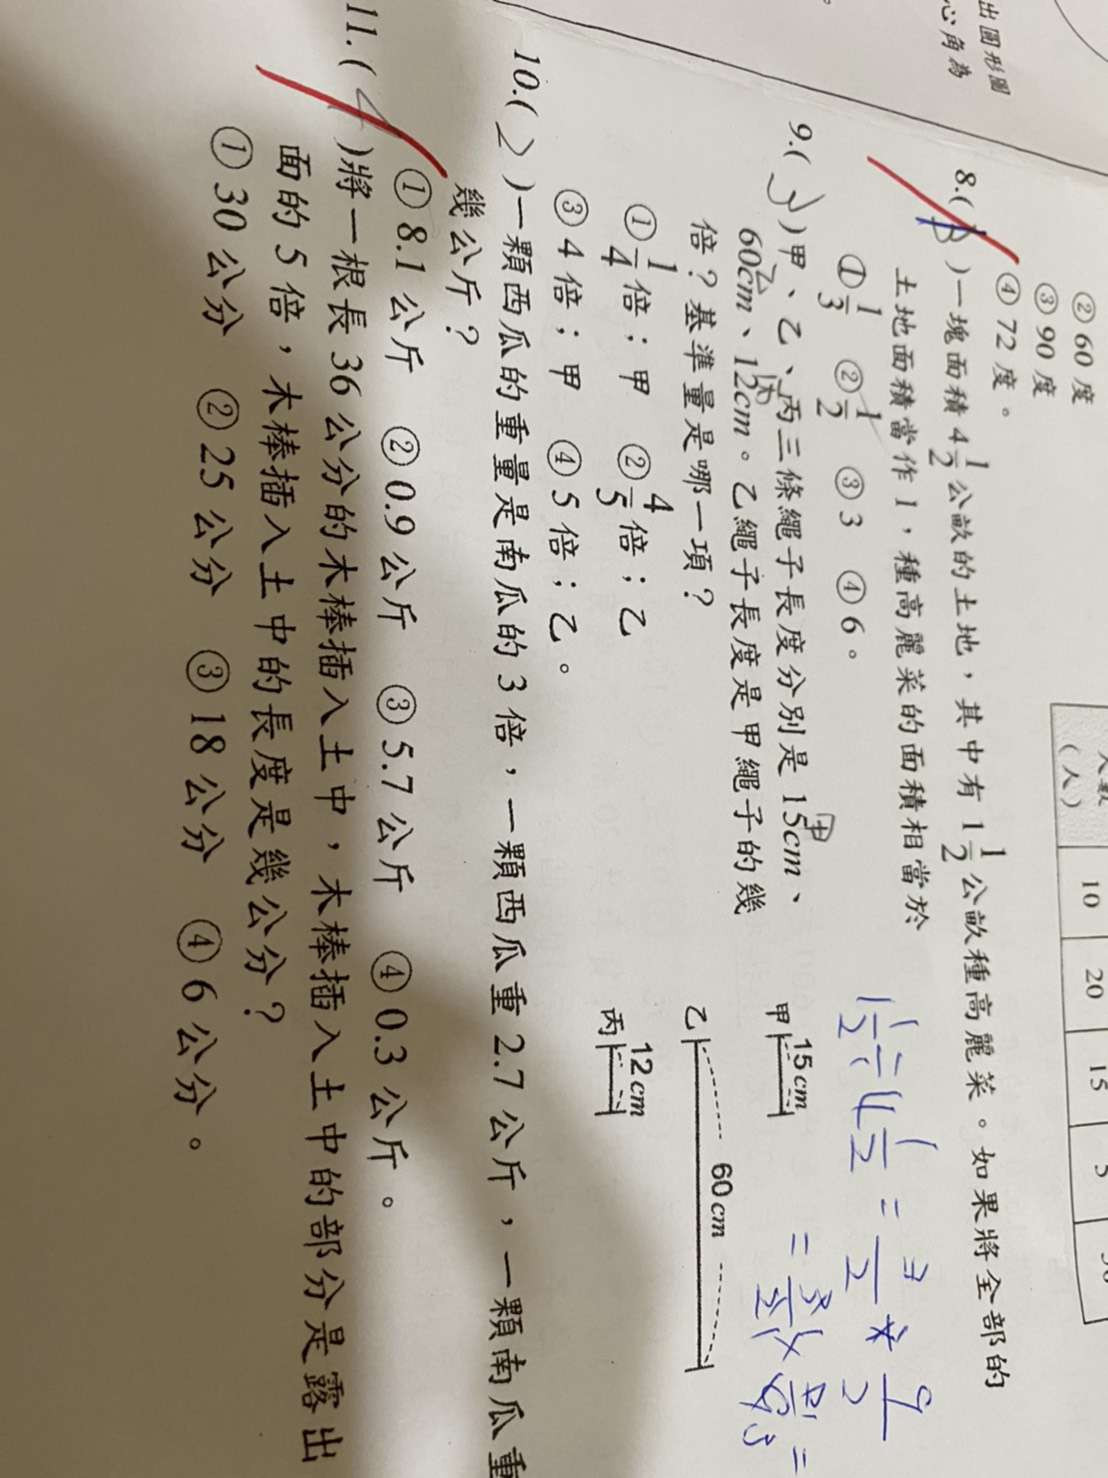 出圓形圖
心角為
②60度
③90度
④72度。
人數
(人)
10
20
15
5
8.( )一塊面積4 1/2公畝的土地，其中有1 1/2公畝種高麗菜。如果將全部的
土地面積當作1，種高麗菜的面積相當於
①1/3 ②1/2 ③3 ④6。
9.(3)甲、乙、丙三條繩子長度分別是15cm、
60cm、12cm。乙繩子長度是甲繩子的幾
倍？基準量是哪一項？
①1/4倍；甲 ②4/5倍；乙
③4倍；甲 ④5倍；乙。
甲 15cm
乙 60cm
丙 12cm
10.(2)一顆西瓜的重量是南瓜的3倍，一顆西瓜重2.7公斤，一顆南瓜重
幾公斤？
①8.1公斤 ②0.9公斤 ③5.7公斤 ④0.3公斤。
11.( )將一根長36公分的木棒插入土中，木棒插入土中的部分是露出
面的5倍，木棒插入土中的長度是幾公分？
①30公分 ②25公分 ③18公分 ④6公分。